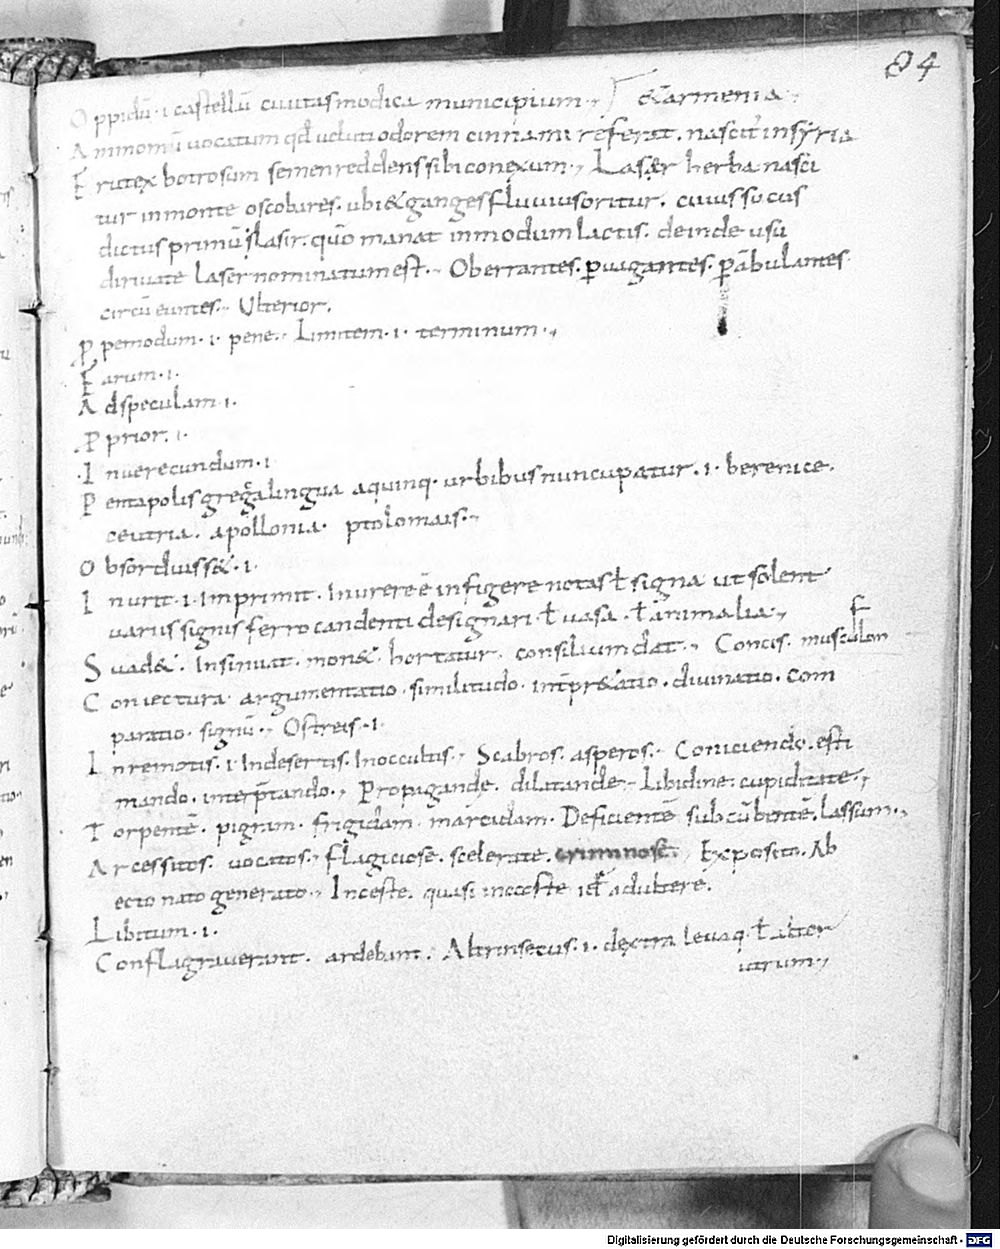 84
Oppidū · i castellū ciuitas modica municipium ·, &armenia ·,
Amomū uocatum qđ uelut odorem cinnami referat. nascit̄ in syria
Frutex botrosum semen reddens sibi conexum ·, Laser herba nasci
tur in monte oscobares. ubi & ganges fluuius oritur. cuius sucus
dictus primū lasir. quo manat in modum lactis. deinde usu
diriuate laser nominatum est ·, Oberrantes. ꝑuagantes. ꝑābulantes
circūeuntes ·, Ulterior.
Ppemodum · i · pene ·, Limitem · i · terminum ·,
Farum · i ·
Ad speculam · i ·
Pprior. i ·
Inuerecundum · i
Pentapolis grega lingua a quinq · urbibus nuncupatur · i · berenice.
ceutria. apollonia. ptolomais ·,
Obsorduiss& · i ·
Inurit · i · Imprimit. Inurere ē infigere notas ł signa ut solent
uariis signis ferro candenti designari ł uasa ł animalia ·,
Suad&. Insinuat. mon&. hortatur. consilium dat ·, Concis. musculon
Coniectura. argumentatio. similitudo. int̄pr&atio. diuinatio. com
paratio. signū ·, Ostreis · i ·
Inremotis. i · Indesertis. Inoccultis ·, Scabros. asperos ·, Coniciendo. esti
mando. interp̄tando ·, Propagande. dilatande ·, Libidine. cupiditate ·,
Torpentē. pigram. frigidam. marcidam. Deficientē subcūbentē. lassum ·,
Arcessitos. uocatos ·, Flagiciose. scelerate. criminose ·, Exposito. Ab
ecto nato generato ·, Inceste. quasi incaste id adultere.
Libitum · i ·
Conflagrauerant. ardebant. Altrinsecus · i · dextra leuaq ł alter
utrum ·,
Digitalisierung gefördert durch die Deutsche Forschungsgemeinschaft - DFG